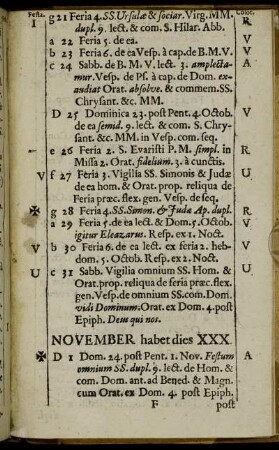 Festa. Color.
g 21 Feria 4. SS. Ursulæ & sociar. Virg. MM. R
dupl. 9. lect. & com. S. Hilar. Abb.
a 22 Feria 5. de ea. V
b 23 Feria 6. de ea Vesp. à cap. de B. M. V. V
c 24 Sabb. de B. M. V. lect. 3. amplecta- A
mur. Vesp. de Pſ. à cap. de Dom. ex-
audiat Orat. abſolve. & commem. SS.
Chryſant. &c. MM.
D 25 Dominica 23. post Pent. 4. Octob. V
de ea ſemid. 9. lect. & com. S. Chry-
ſant. &c. MM. in Veſp. com. ſeq.
e 26 Feria 2. S. Evariſti P. M. ſimpl. in R
Miſſa 2. Orat. fidelium. 3. à cunctis.
V f 27 Feria 3. Vigilia SS. Simonis & Judæ U
de ea hom. & Orat. prop. reliqua de
Feria præc. flex. gen. Veſp. de ſeq.
✠ g 28 Feria 4. SS. Simon. & Judæ Ap. dupl. R
a 29 Feria 5. de ea lect. & Dom. 5. Octob. V
igitur Eleazarus. Reſp. ex 1. Noct.
V b 30 Feria 6. de ea lect. ex feria 2. heb- V
dom. 5. Octob. Reſp. ex 2. Noct.
U c 31 Sabb. Vigilia omnium SS. Hom. & U
Orat. prop. reliqua de feria præc. flex.
gen. Veſp. de omnium SS. com. Dom.
vidi Dominum. Orat. ex Dom. 4. poſt
Epiph. Deus qui nos.
NOVEMBER habet dies XXX.
✠ D 1 Dom. 24. poſt Pent. 1. Nov. Feſtum A
omnium SS. dupl. 9. lect. de Hom. &
com. Dom. ant. ad Bened. & Magn.
cum Orat. ex Dom. 4. poſt Epiph.
F poſt